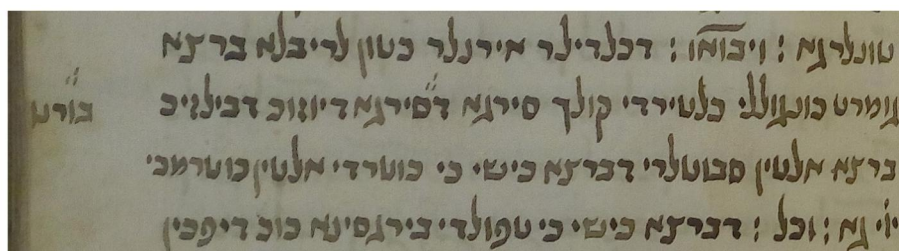 טונלרגא : ויבואו : דכלדילר אירנלר כטון לריבלא ברצא
גומרט כונגוללי כלטירדי קולך סירגא דסירגא דיוזוכ דבילזיכ
ברצא אלטין סבוטלרי דברצא כישי כי כוטרדי אלטין כוטרמכי
גא : וכל : דברצא כישי כי טפולדי בירגסינא כוכ דיפכין